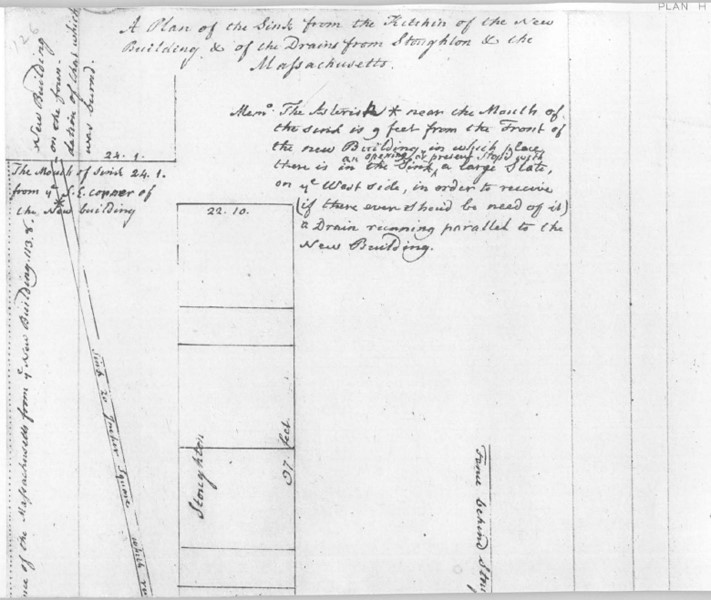 PLAN H
126
A Plan of the Sink from the Kitchin of the New
Building & of the Drains from Stoughton & the
Massachusetts.
New Building
on the foun-
dation of that which
was burnd.
Memo. The Asterisk * near the Mouth of
the sink is 9 feet from the Front of
the new Building, in which place
there is in the Sink, a large Slate,
an opening at present stop'd with
on ye West side, in order to receive
(if there ever should be need of it)
a Drain running parallel to the
New Building.
24. 1.
The Mouth of Sink 24. 1.
from ye S. E. corner of
the New building
*
22. 10.
of the Massachusetts from ye New Building 113. 8.
Sink to Square which
Stoughton
97 feet
from behind